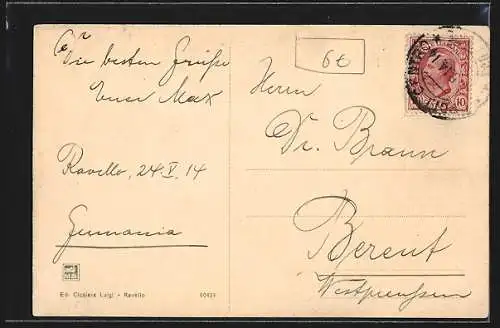 Die besten Grüße
Euer Max
Ravello, 24.V.14
Germania
Ed. Cicalese Luigi - Ravello
6€
Herrn
Dr. Braun
Berent
Westpreußen
10